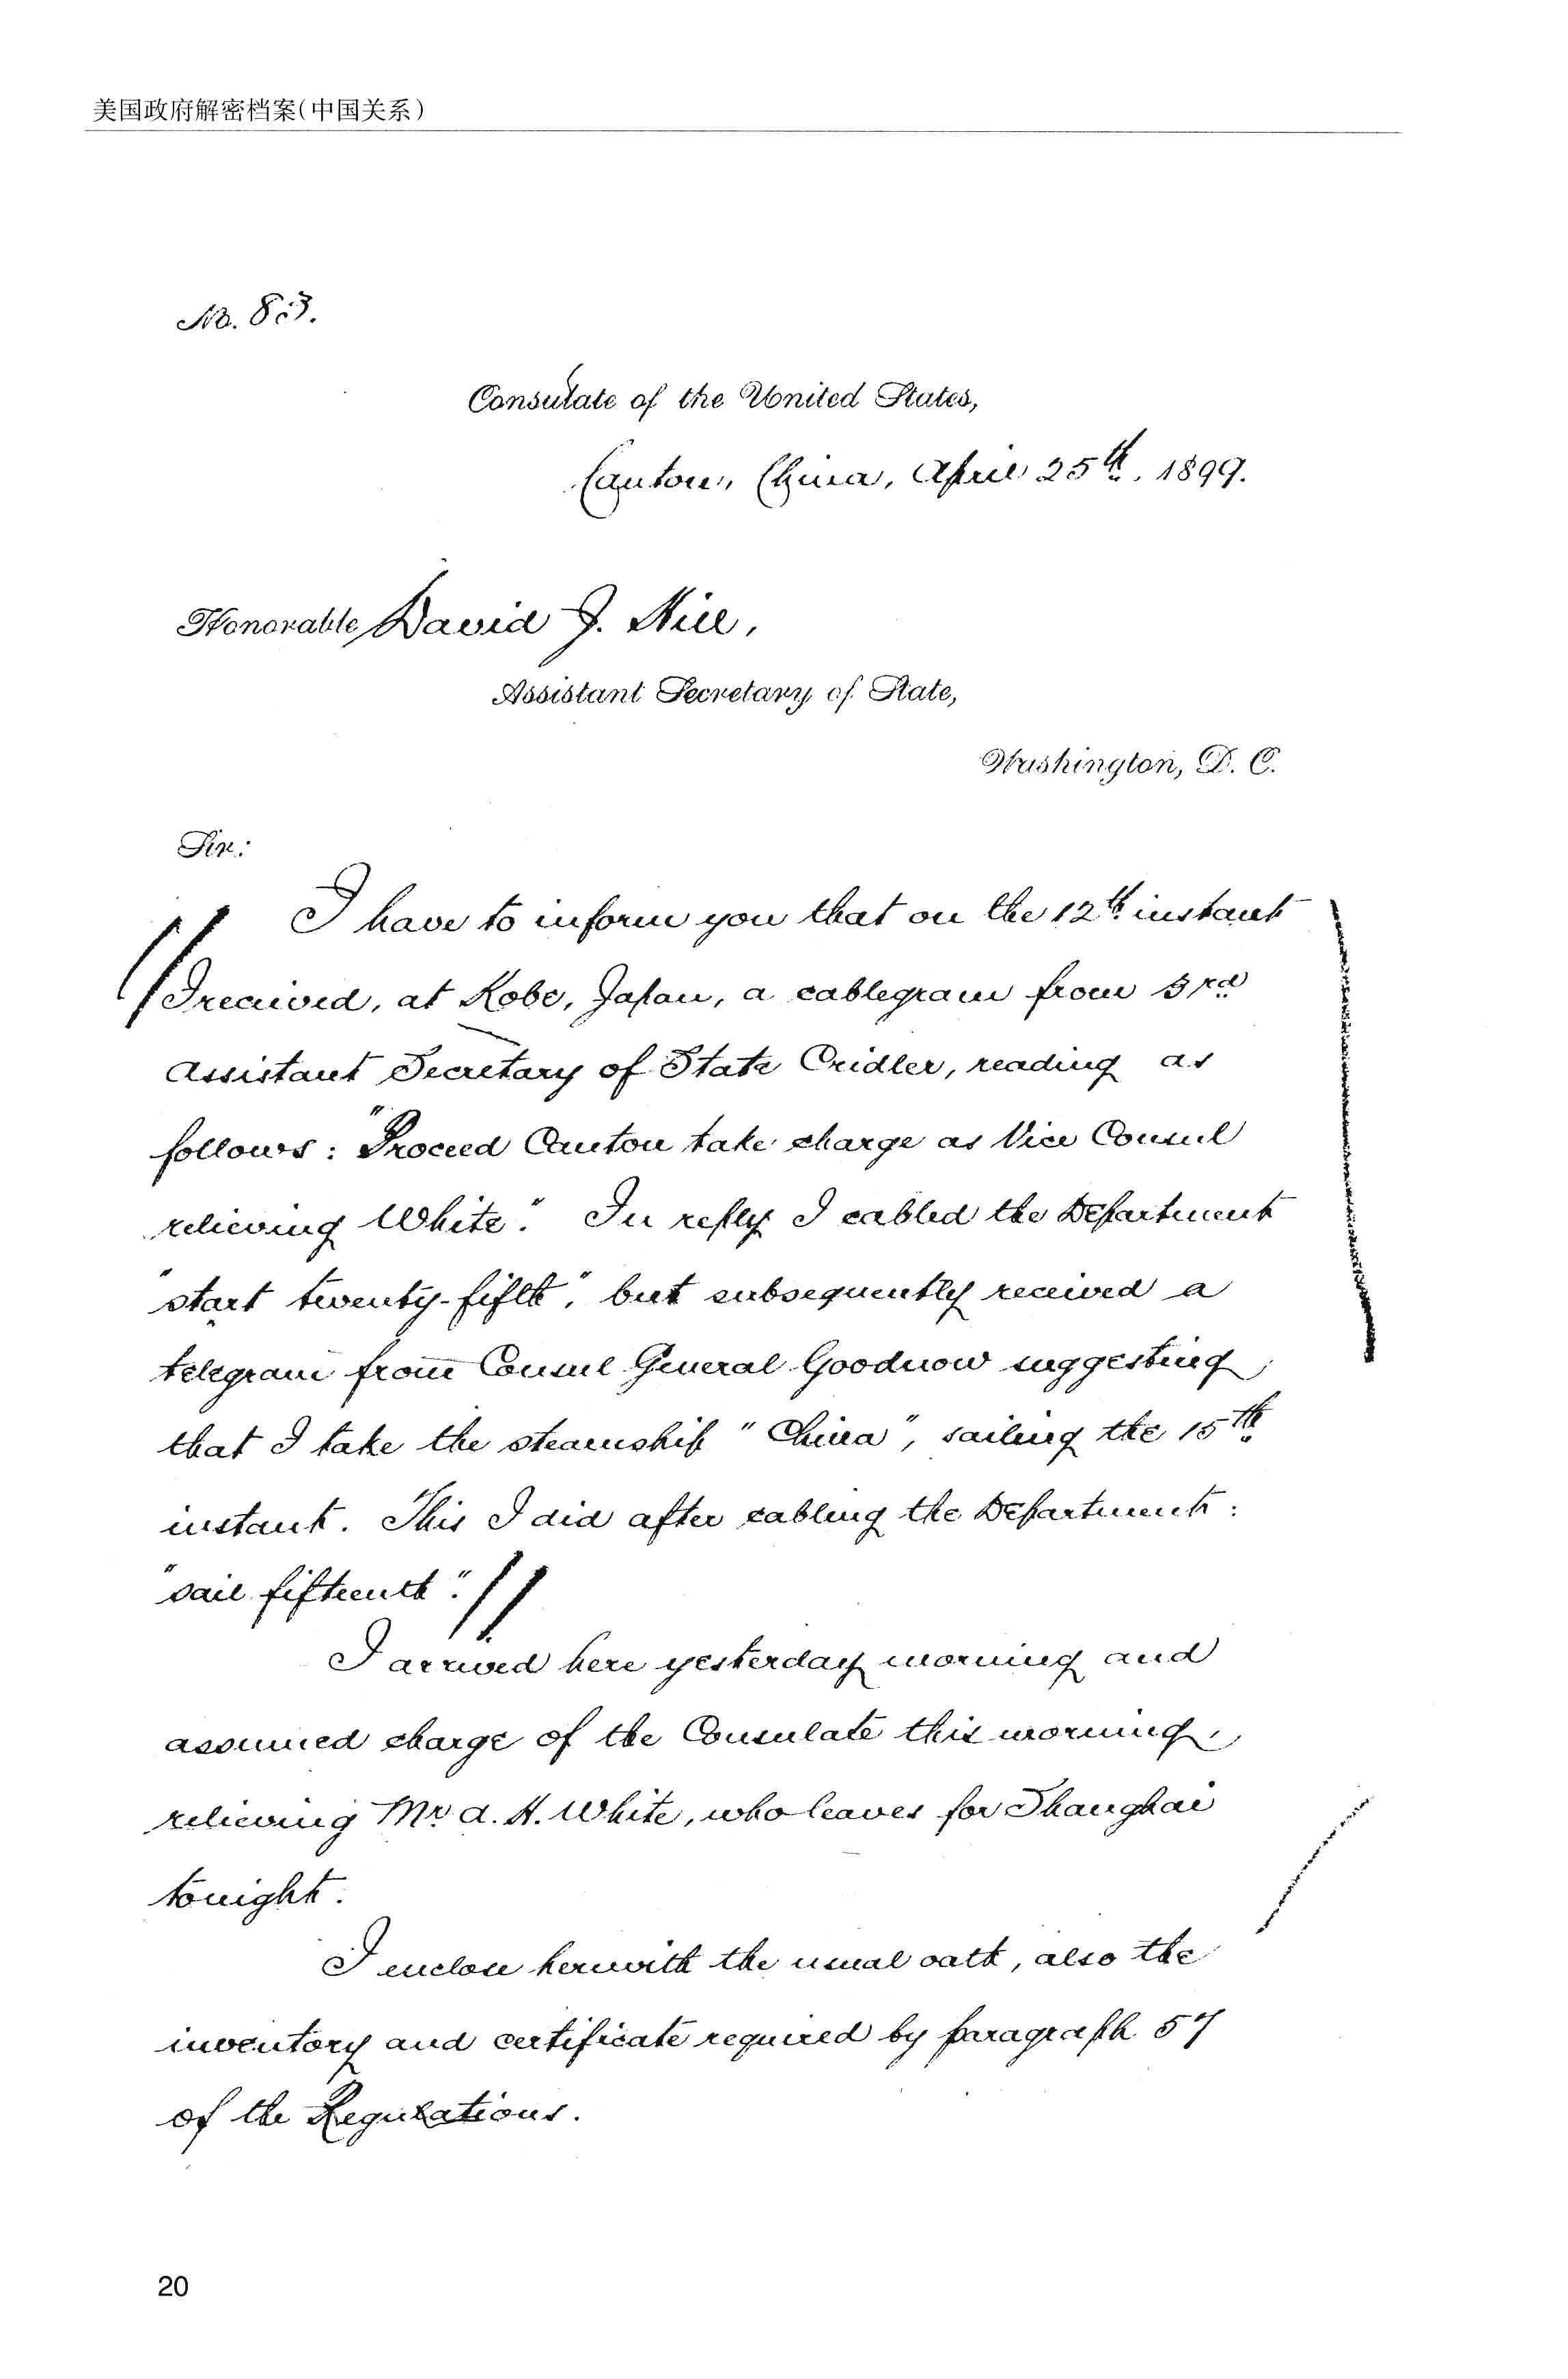 美国政府解密档案(中国关系)
No. 83.
Consulate of the United States,
Canton, China, April 25th, 1899.
Honorable David J. Hill,
Assistant Secretary of State,
Washington, D. C.
Sir:
I have to inform you that on the 12th instant
I received, at Kobe, Japan, a cablegram from 3rd
Assistant Secretary of State Cridler, reading as
follows: "Proceed Canton take charge as Vice Consul
relieving White." In reply I cabled the Department
"start twenty-fifth", but subsequently received a
telegram from Consul General Goodnow suggesting
that I take the steamship "China", sailing the 15th
instant. This I did after cabling the Department:
"sail fifteenth".
I arrived here yesterday morning and
assumed charge of the Consulate this morning,
relieving Mr A. H. White, who leaves for Shanghai
tonight.
I enclose herewith the usual oath, also the
inventory and certificate required by paragraph 57
of the Regulations.
20